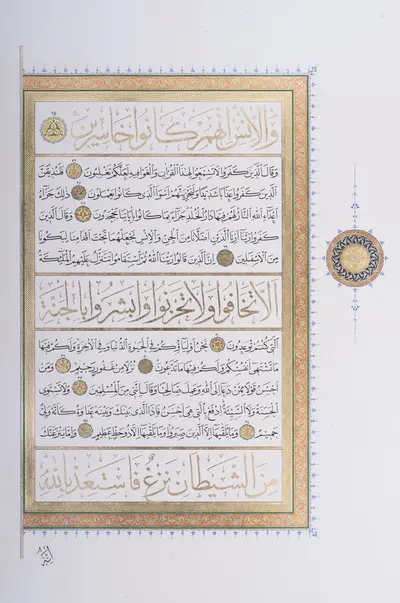 وَالْإِنْسِ إِنَّهُمْ كَانُوا خَاسِرِينَ
وَقَالَ الَّذِينَ كَفَرُوا لَا تَسْمَعُوا لِهَذَا الْقُرْآنِ وَالْغَوْا فِيهِ لَعَلَّكُمْ تَغْلِبُونَ فَلَنُذِيقَنَّ
الَّذِينَ كَفَرُوا عَذَابًا شَدِيدًا وَلَنَجْزِيَنَّهُمْ أَسْوَأَ الَّذِي كَانُوا يَعْمَلُونَ ذَلِكَ جَزَاءُ
أَعْدَاءِ اللَّهِ النَّارُ لَهُمْ فِيهَا دَارُ الْخُلْدِ جَزَاءً بِمَا كَانُوا بِآيَاتِنَا يَجْحَدُونَ وَقَالَ الَّذِينَ
كَفَرُوا رَبَّنَا أَرِنَا اللَّذَيْنِ أَضَلَّانَا مِنَ الْجِنِّ وَالْإِنْسِ نَجْعَلْهُمَا تَحْتَ أَقْدَامِنَا لِيَكُونَا
مِنَ الْأَسْفَلِينَ إِنَّ الَّذِينَ قَالُوا رَبُّنَا اللَّهُ ثُمَّ اسْتَقَامُوا تَتَنَزَّلُ عَلَيْهِمُ الْمَلَائِكَةُ
أَلَّا تَخَافُوا وَلَا تَحْزَنُوا وَأَبْشِرُوا بِالْجَنَّةِ
الَّتِي كُنْتُمْ تُوعَدُونَ نَحْنُ أَوْلِيَاؤُكُمْ فِي الْحَيَوةِ الدُّنْيَا وَفِي الْآخِرَةِ وَلَكُمْ فِيهَا
مَا تَشْتَهِي أَنْفُسُكُمْ وَلَكُمْ فِيهَا مَا تَدَّعُونَ نُزُلًا مِنْ غَفُورٍ رَحِيمٍ وَمَنْ
أَحْسَنُ قَوْلًا مِمَّنْ دَعَا إِلَى اللَّهِ وَعَمِلَ صَالِحًا وَقَالَ إِنَّنِي مِنَ الْمُسْلِمِينَ وَلَا تَسْتَوِي
الْحَسَنَةُ وَلَا السَّيِّئَةُ ادْفَعْ بِالَّتِي هِيَ أَحْسَنُ فَإِذَا الَّذِي بَيْنَكَ وَبَيْنَهُ عَدَاوَةٌ كَأَنَّهُ وَلِيٌّ
حَمِيمٌ وَمَا يُلَقَّاهَا إِلَّا الَّذِينَ صَبَرُوا وَمَا يُلَقَّاهَا إِلَّا ذُو حَظٍّ عَظِيمٍ وَإِمَّا يَنْزَغَنَّكَ
مِنَ الشَّيْطَانِ نَزْغٌ فَاسْتَعِذْ بِاللَّهِ
إِنَّهُ